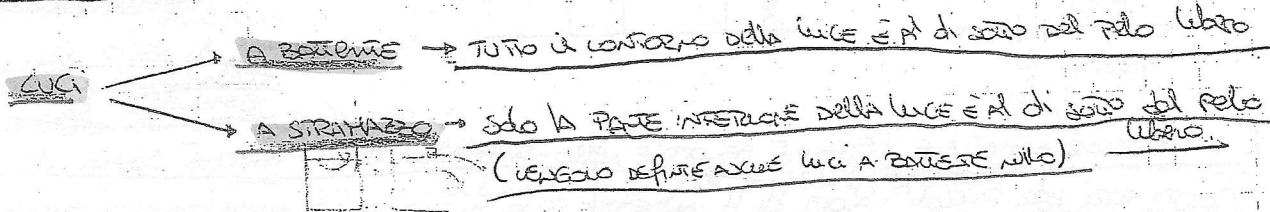 A BATTENTE → TUTTO IL CONTORNO DELLA LUCE È AL di SOTTO DEL PELO libero
LUCI
A STRAMAZZO → SOLO LA PARTE INFERIORE DELLA LUCE È AL di SOTTO del pelo
libero.
(VENGONO DEFINITE ANCHE luci A BATTENTE NULLO)